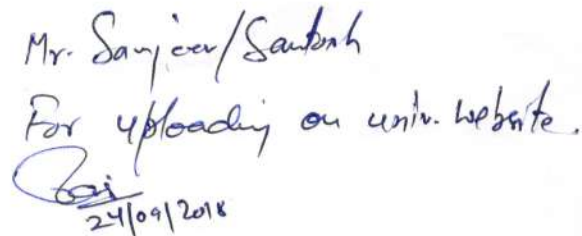 Mr. Sanjeev/Santosh
For uploading on univ. website.
24/09/2018